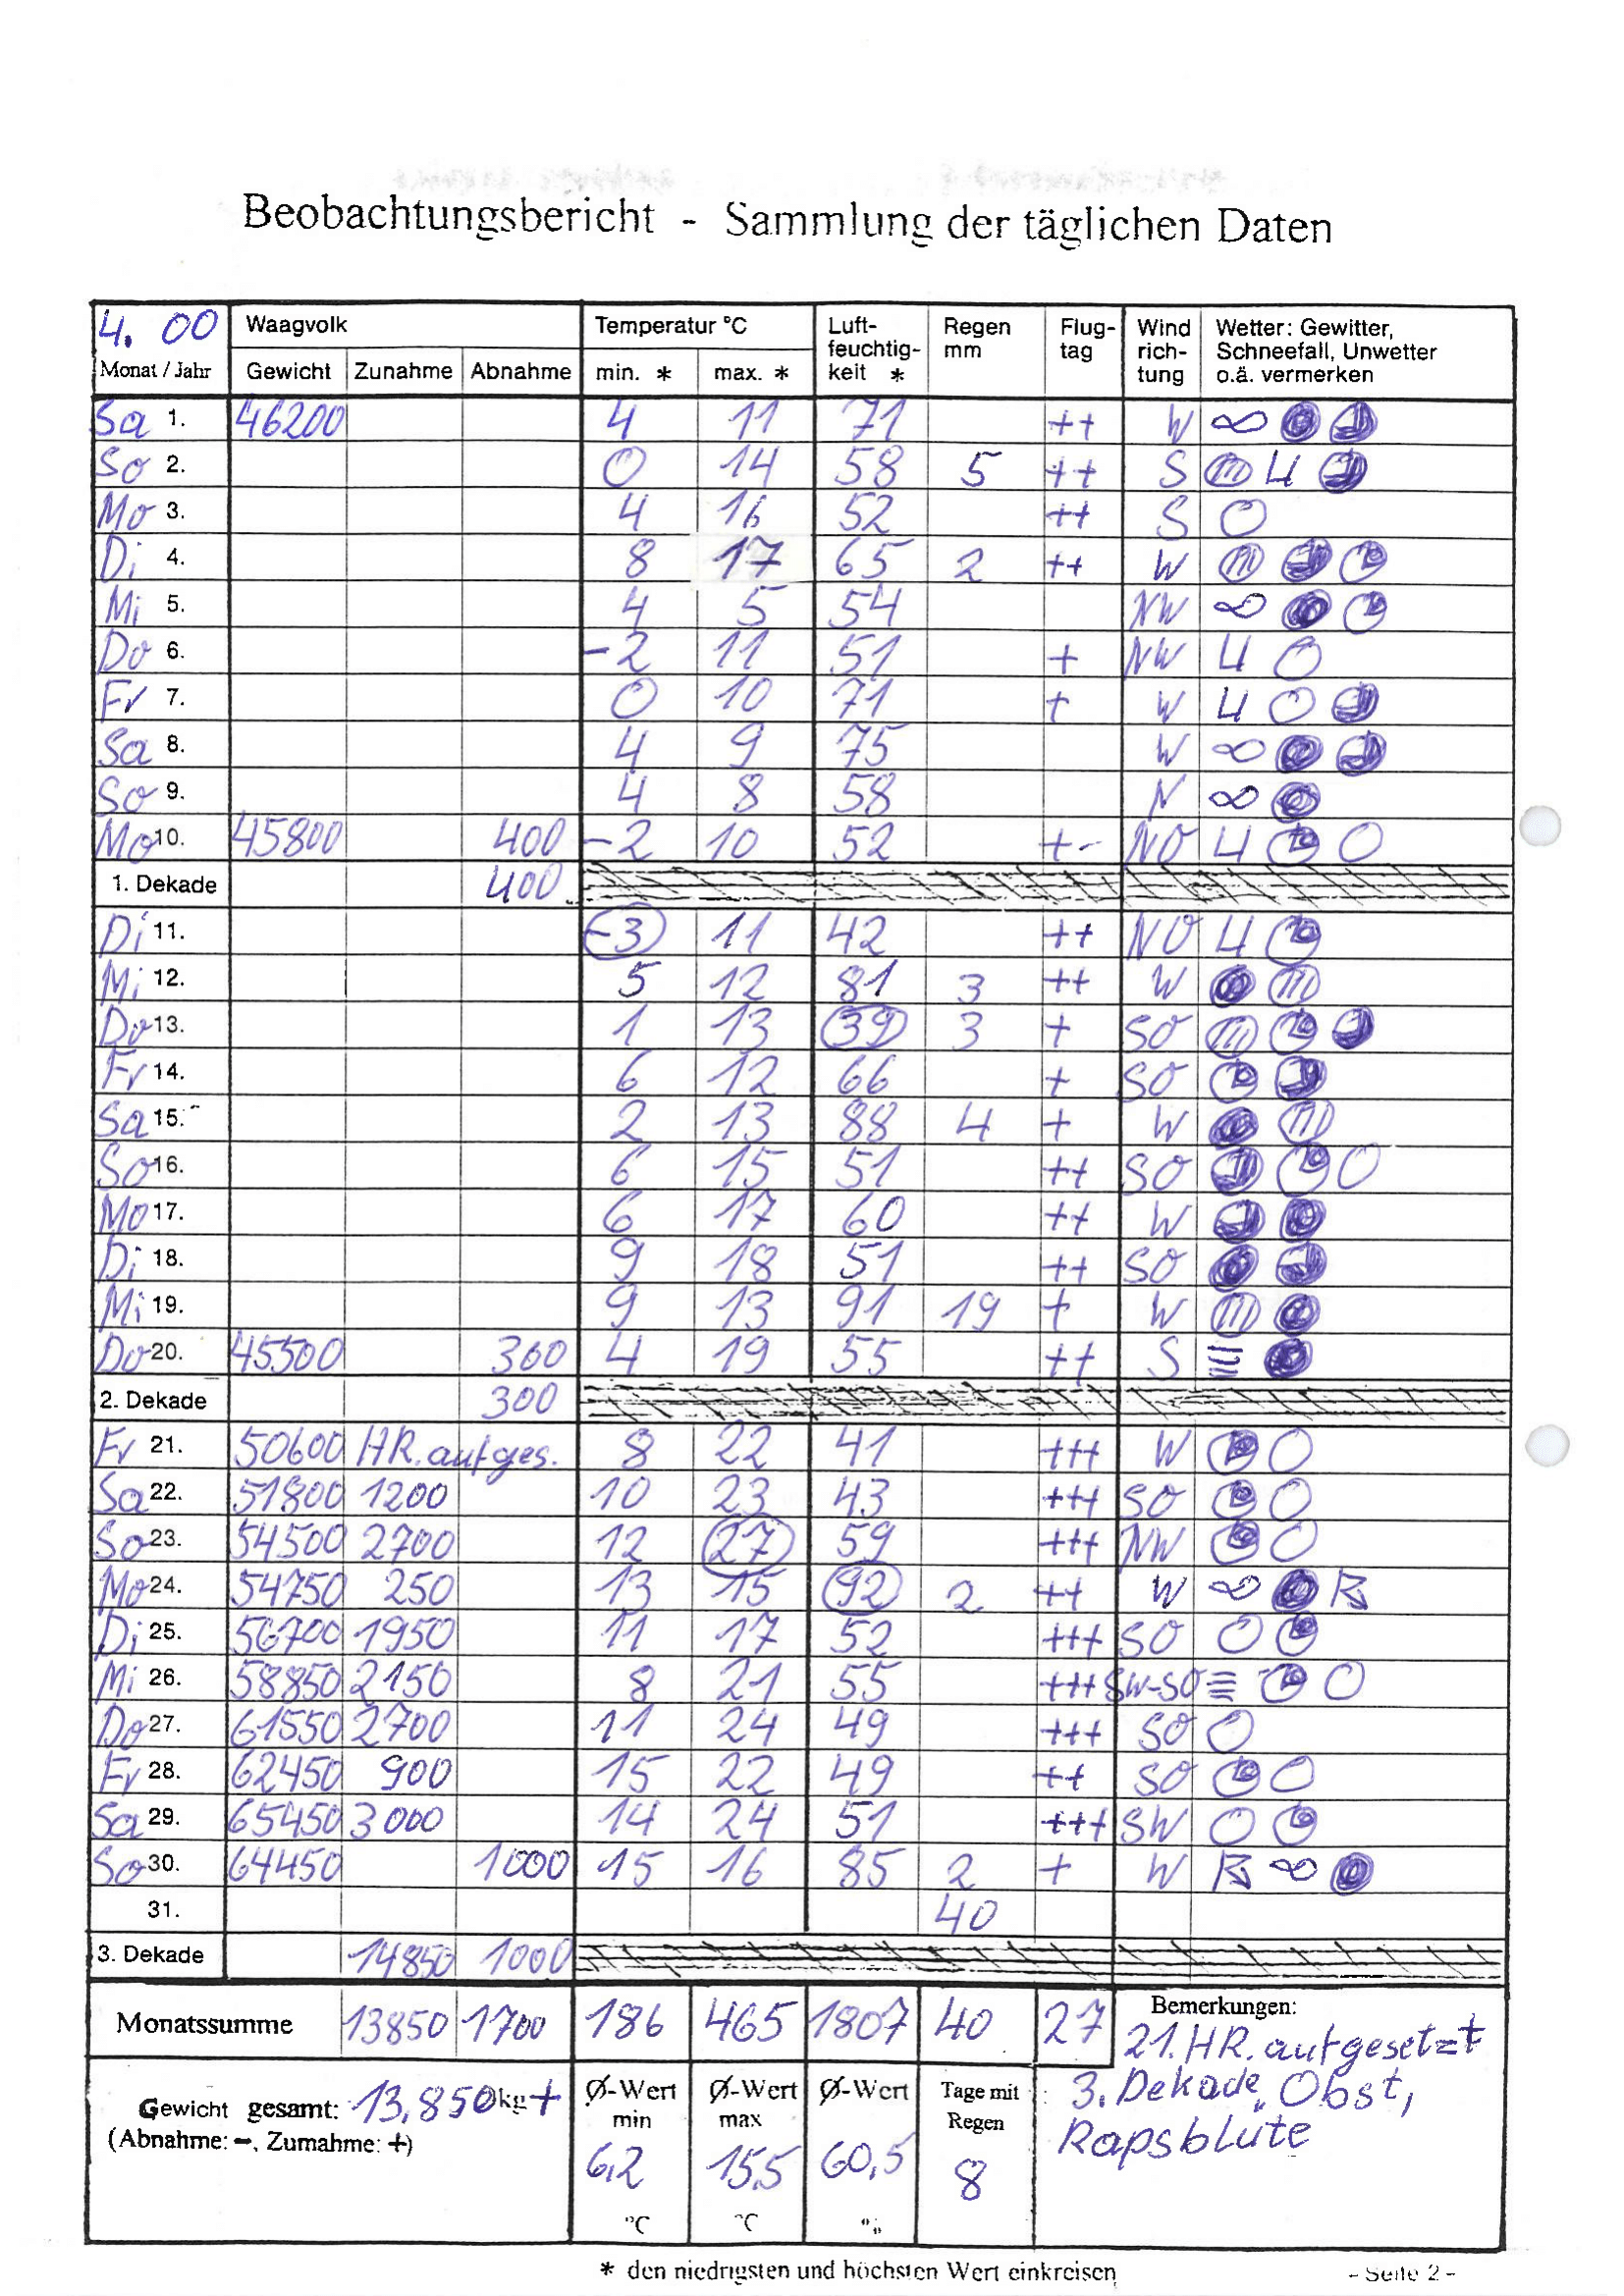 Beobachtungsbericht - Sammlung der täglichen Daten
4. 00 Waagvolk Temperatur °C Luft- Regen Flug- Wind Wetter: Gewitter,
feuchtig- mm tag rich- Schneefall, Unwetter
Monat / Jahr Gewicht Zunahme Abnahme min. * max. * keit * tung o.ä. vermerken
Sa 1. 46200 4 11 71 ++ W ∞
So 2. 0 14 58 5 ++ S
Mo 3. 4 16 52 ++ S
Di 4. 8 17 65 2 ++ W
Mi 5. 4 5 54 NW ∞
Do 6. -2 11 51 + NW
Fr 7. 0 10 71 + W
Sa 8. 4 9 75 W ∞
So 9. 4 8 58 N ∞
Mo 10. 45800 400 -2 10 52 +- NO
1. Dekade 400
Di 11. -3 11 42 ++ NO
Mi 12. 5 12 81 3 ++ W
Do 13. 1 13 39 3 + SO
Fr 14. 6 12 66 + SO
Sa 15. 2 13 88 4 + W
So 16. 6 15 51 ++ SO
Mo 17. 6 17 60 ++ W
Di 18. 9 18 51 ++ SO
Mi 19. 9 13 91 19 + W
Do 20. 45500 300 4 19 55 ++ S ≡
2. Dekade 300
Fr 21. 50600 HR. aufges. 8 22 41 +++ W
Sa 22. 51800 1200 10 23 43 +++ SO
So 23. 54500 2700 12 27 59 +++ NW
Mo 24. 54750 250 13 15 92 2 ++ W ∞
Di 25. 56700 1950 11 17 52 +++ SO
Mi 26. 58850 2150 8 21 55 +++ SW-SO ≡
Do 27. 61550 2700 11 24 49 +++ SO
Fr 28. 62450 900 15 22 49 ++ SO
Sa 29. 65450 3000 14 24 51 +++ SW
So 30. 64450 1000 15 16 85 2 + W ∞
31. 40
3. Dekade 14850 1000
Monatssumme 13850 1700 186 465 1807 40 27
Bemerkungen:
21. HR. aufgesetzt
3. Dekade, Obst,
Rapsblüte
Gewicht gesamt: 13,850 kg +
(Abnahme: -, Zumahme: +)
Ø-Wert Ø-Wert Ø-Wert Tage mit
min max Regen
6,2 15,5 60,5 8
°C °C %
* den niedrigsten und höchsten Wert einkreisen - Seite 2 -